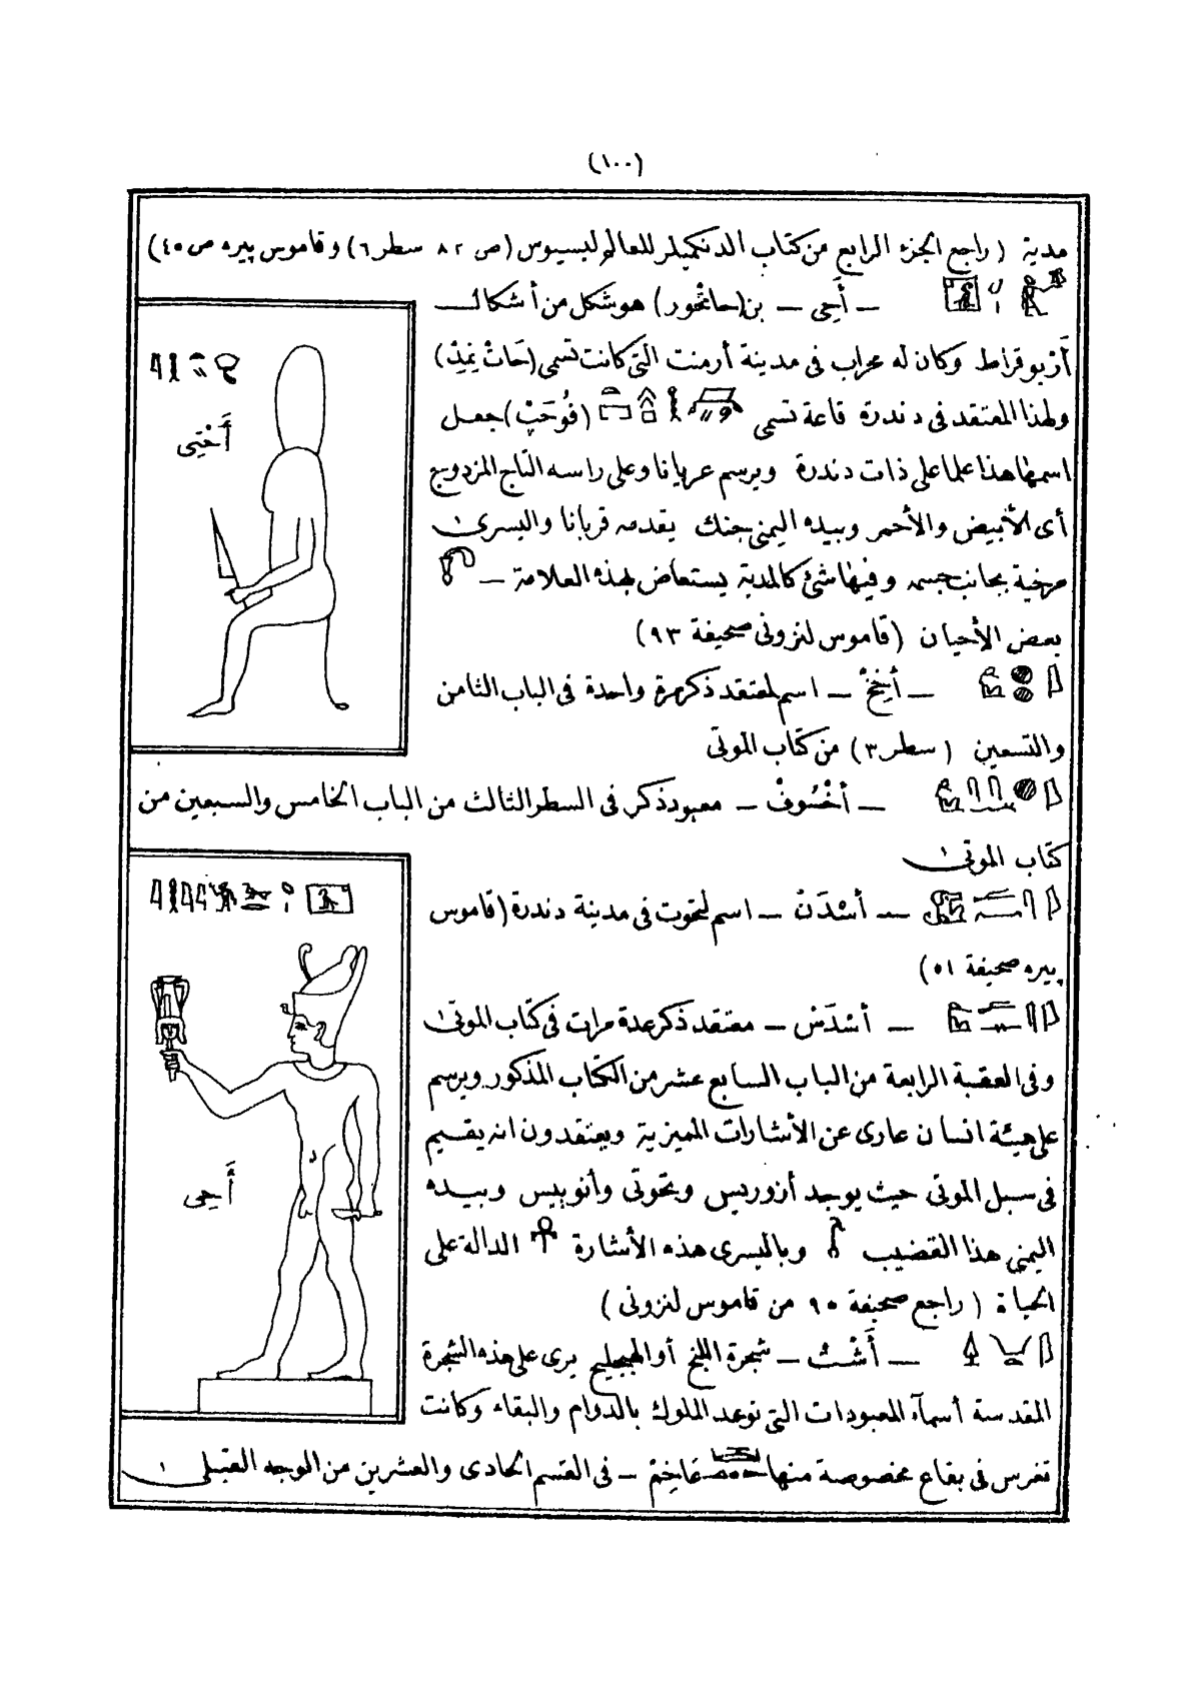 (١٠٠)
مدية (راجع الجزء الرابع من كتاب الدنكميلر للعالم لبسيوس (ص ٨٢ سطر ٦) وقاموس پيره ص ٤٥)
— أَحِى — بن (حاتحور) هو شكل من أشكال
أَرْپوقراط وكان له عراب فى مدينة أرمنت التى كانت تسمى
ولهذا المعتقد فى دندرة قاعة تسمى جعل
اسمها هذا علما على ذات دندرة ويرسم عريانا وعلى راسه التاج المزدوج
أى الأبيض والأحمر وبيده اليمنى جنك يقدمه قربانا واليسرى
مرخية بجانب جسمه وفيها شئ كالمدية يستعاض بهذه العلامة —
بعض الأحيان (قاموس لنزونى صحيفة ٩٣)
— أَخِخْ — اسم لمعتقد ذكر مرة واحدة فى الباب الثامن
والتسعين (سطر ٣) من كتاب الموتى
— أخْسُوفْ — معبود ذكر فى السطر الثالث من الباب الخامس والسبعين من
كتاب الموتى
— أسْدَنْ — اسم لتحوت فى مدينة دندرة (قاموس
پيره صحيفة ٥١)
— أسْدَسْ — معتقد ذكر عدة مرات فى كتاب الموتى
وفى العقبة الرابعة من الباب السابع عشر من الكتاب المذكور ويرسم
على هيئة انسان عارى عن الأشارات المميزية ويعتقدون انه يقسيم
فى سبل الموتى حيث يوجد أزوريس وتحوتى وأنوبيس وبيده
اليمنى هذا القضيب وباليسرى هذه الأشارة الدالة على
الحياة (راجع صحيفة ٩٠ من قاموس لنزونى)
— أَشْتْ — شجرة اللبخ أو الهجليج يرى على هذه الشجرة
المقدسة أسمآء المعبودات التى توعد الملوك بالدوام والبقاء وكانت
تغرس فى بقاع مخصوصة منها — فى القسم الحادى والعشرين من الوجه القبلى
أَخْتِى
أَحِى